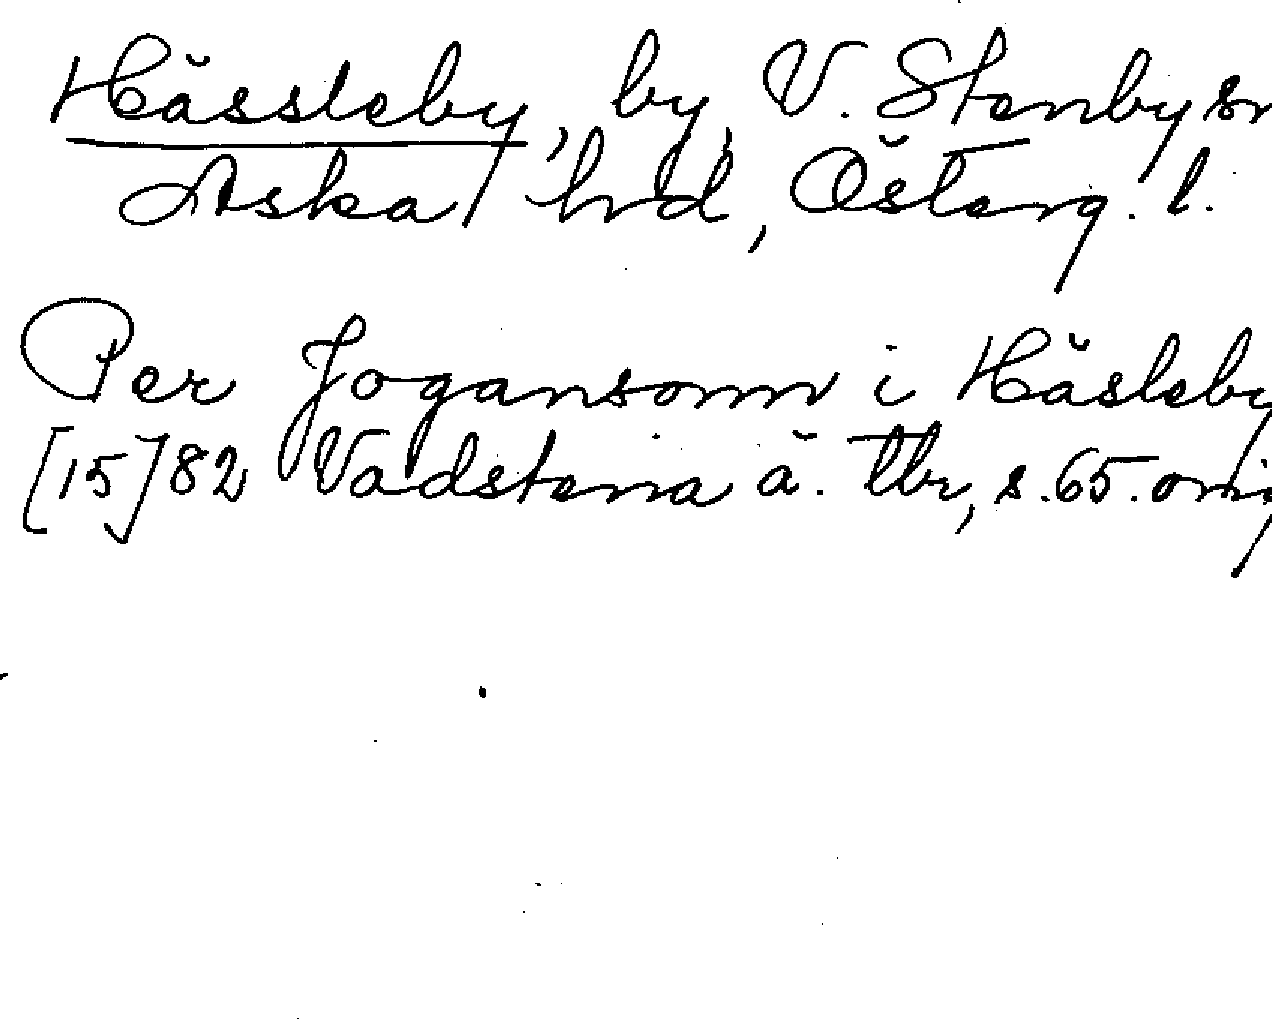 Hässleby, by, V. Stenby sn
Aska hrd, Österg. l.
Per Jogansonn i Häsleby
[15]82 Vadstena ä. tbr, s. 65. orig